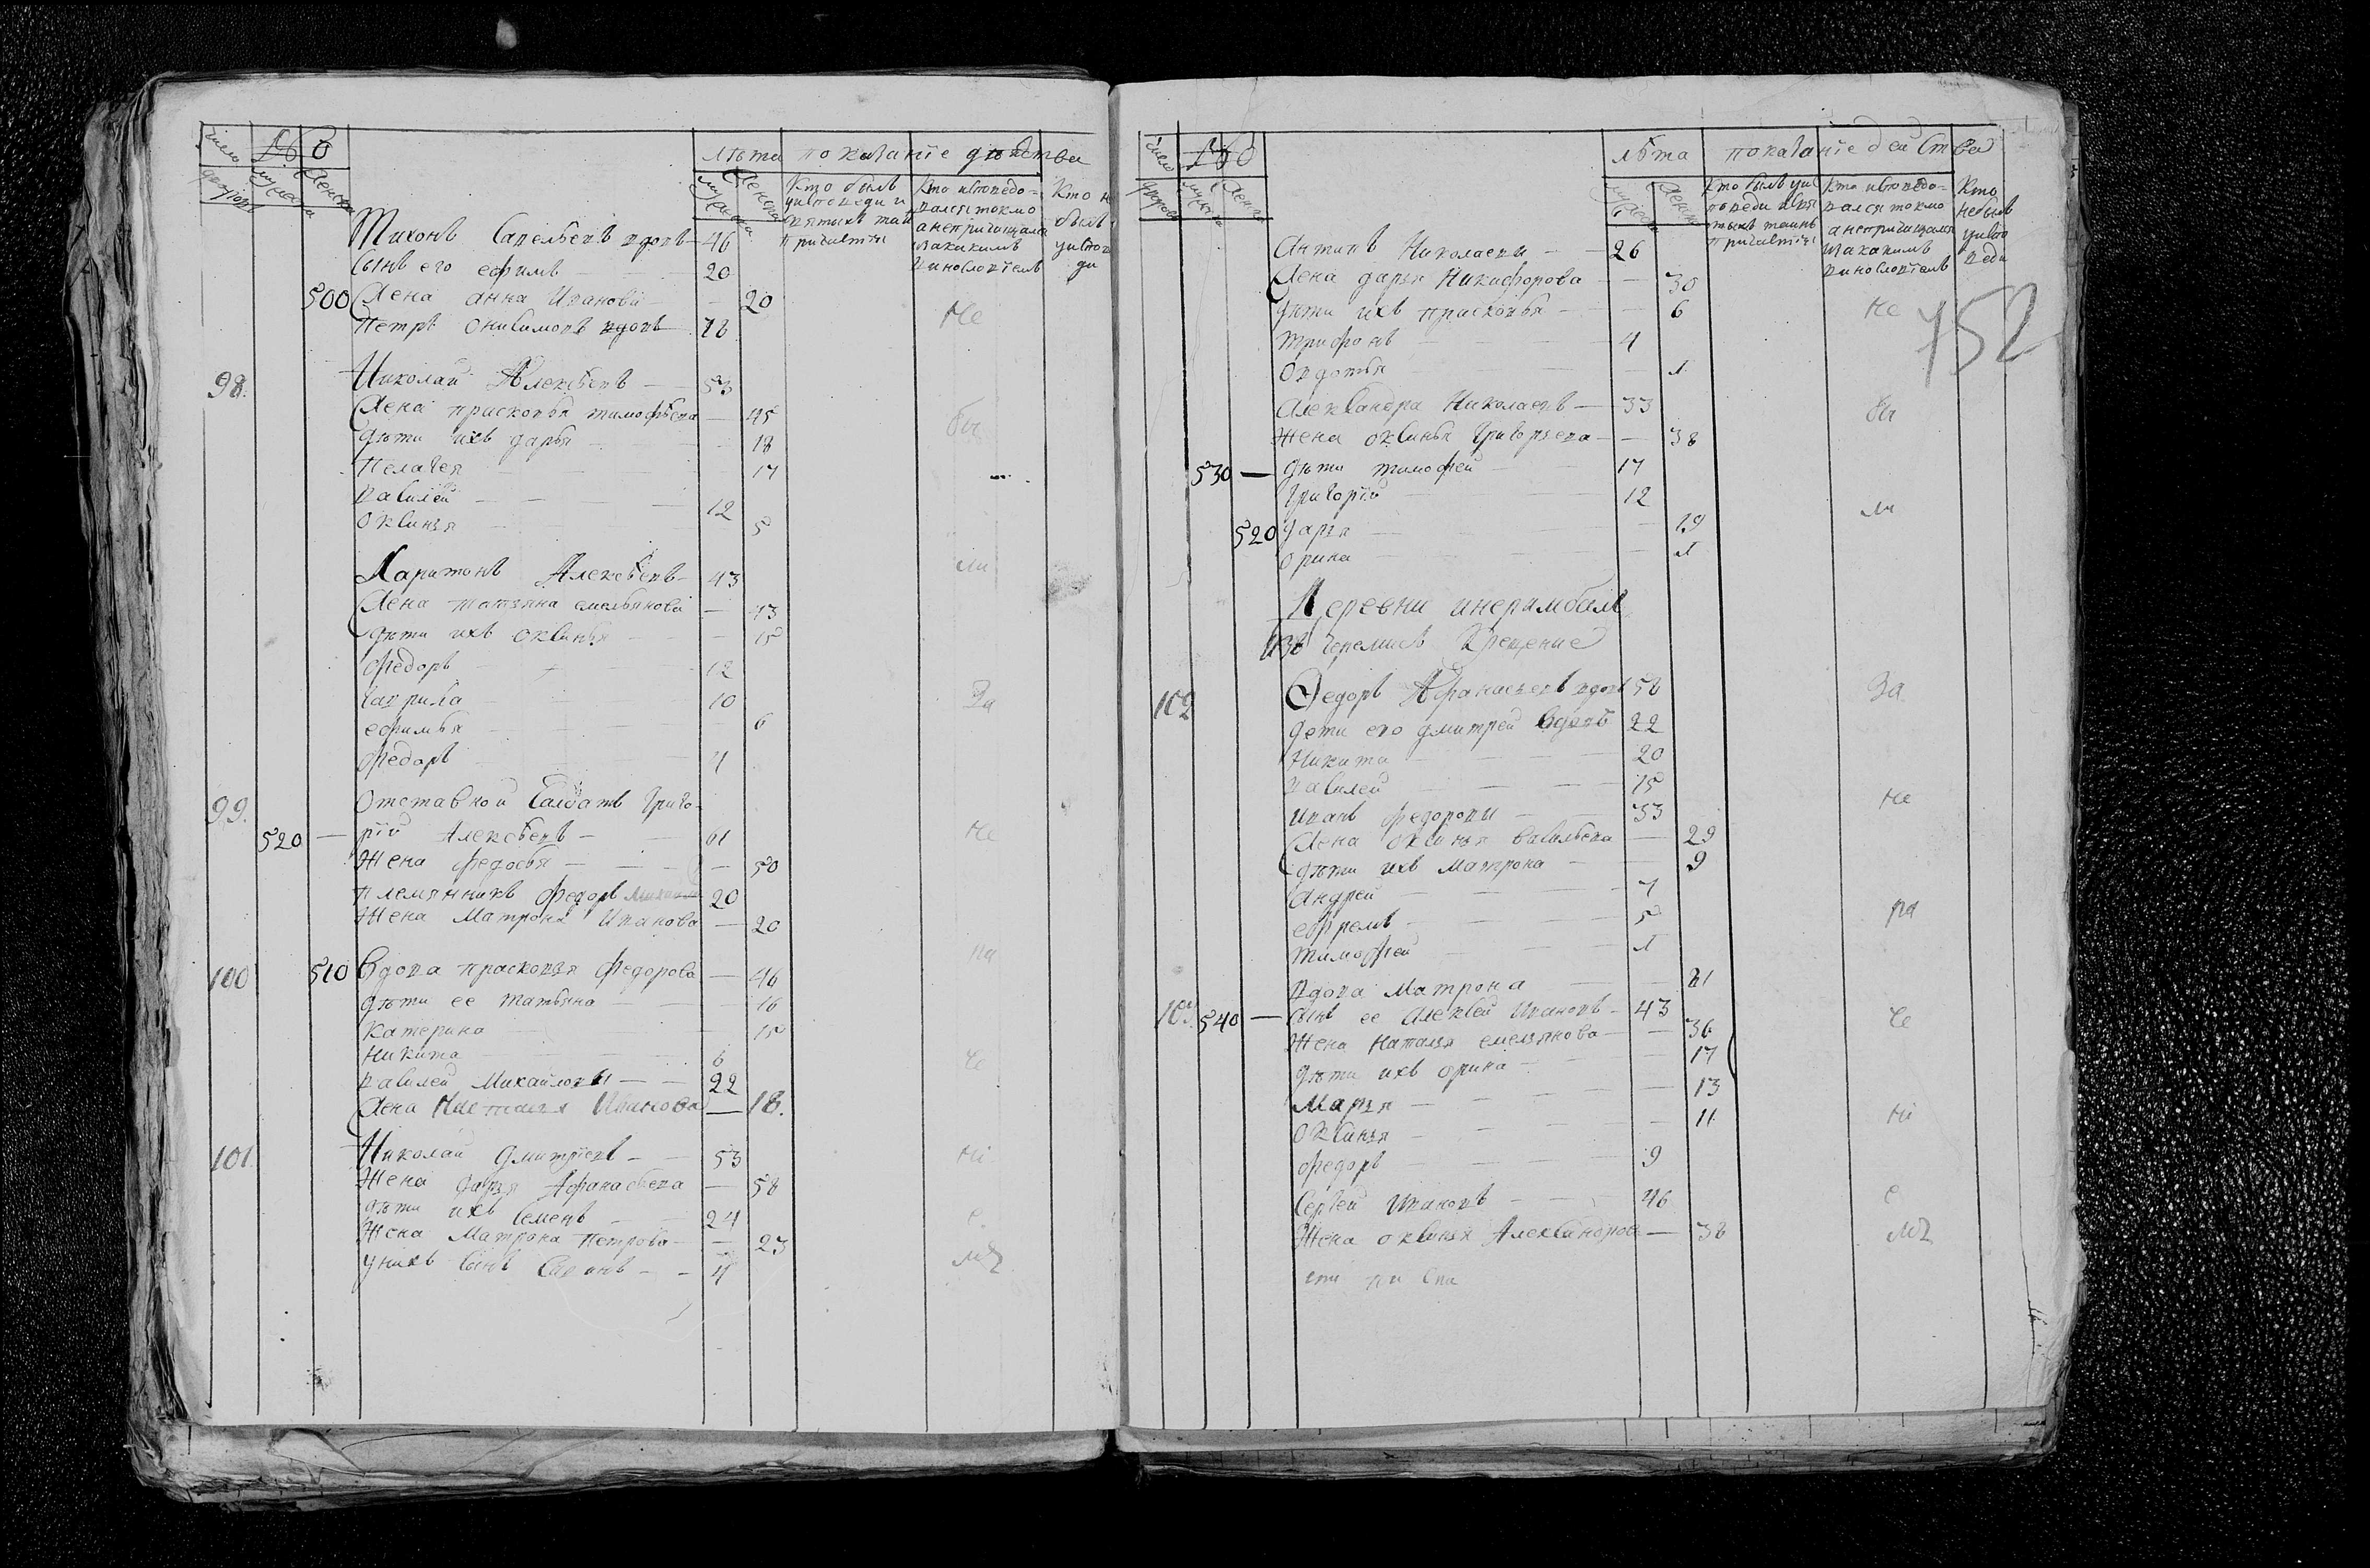 число дворовъ
мужеска
женска
лѣта
показание действа
мужеска
женска
Кто былъ
уисповеди и
святыхъ таи
причастия
Кто исповедо-
вался токмо
а непричащался
закакимъ
винословiемъ
Кто н
былъ
уиспо
ди
Тихонъ Савельевъ вдовъ 46
Сынъ его ефимъ 20
500 Жена анна Иванова 20
Петръ онисимовъ вдовъ 78
Не
98. Николай Алексѣевъ 53
Жена прасковья тимофѣева 45
дѣти ихъ дарья 18
бы
Пелагея 17
василей 12
оксинья 5
Харитонъ Алексѣевъ 43
ли
Жена татьяна емельянова 43
дѣти ихъ оксинья 15
Федоръ 12
гаврила 10
За
ефимья 6
Федоръ 4
99. Отставной Салдатъ Григо-
520 рiй Алексѣевъ 61
Не
Жена Федосья 50
племянникъ Федоръ 20
Жена Матрона Иванова 20
100 510 Вдова прасковья Федорова 46
ра
дѣти ее татьяна 16
Катерина 15
Никита 6
че
василей Михайловы 22
Жена Наталья Иванова 18.
101. Николай дмитрiевъ 53
нi
Жена дарья Афанасьева 58
дѣти ихъ Семенъ 24
е
Жена Матрона Петрова 23
унихъ Сынъ 4
мъ
число дворовъ
мужеска
женска
лѣта
показанiе действа
мужеска
женска
Кто былъ уис
поведи исвя
тыхъ таинъ
причастiя
Кто исповедо-
вался токмо
а непричащался
закакимъ
винословiемъ
Кто
небылъ
уиспо
веди
Антипъ Николаевы 26
Жена дарья Никифорова 30
752
дѣти ихъ прасковья 6
Не
трифонъ 4
Овдотья 1
Александра Николаевъ 33
бы
Жена оксинья Григорьева 38
530 дѣти тимофей 17
Григорiй 12
ли
520 дарья 19
орина 1
Деревни
Изъ Черемисъ Крещение
102 Федоръ Афанасьевъ вдовъ 58
За
дети его дмитрей вдовъ 22
Никита 20
василей 15
Иванъ Федоровы 33
Не
Жена оксинья васильева 29
дѣти ихъ Матрона 9
Андрей 7
ефремъ 5
ра
тимофей 1
вдова Матрона 81
103. 540 Сынъ ее Алексей Ивановъ 43
че
Жена Наталья емельянова 36
дѣти ихъ орина 17
Марья 13
оксинья 11
нi
Федоръ 9
Сергей Ивановъ 46
е
Жена оксинья Александрова 38
мъ